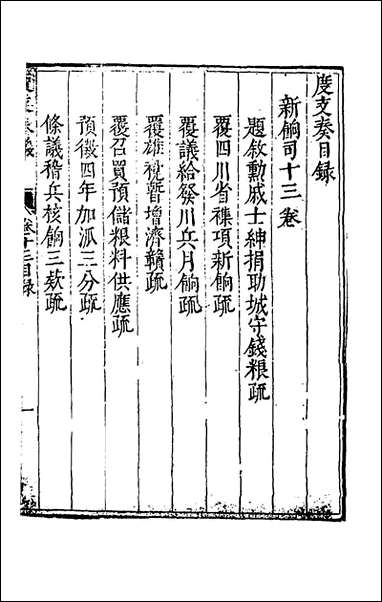 度支奏目録
新餉司十三卷
題敘勲戚士紳捐助城守錢粮疏
覆四川省襍項新餉疏
覆議給發川兵月餉疏
覆雄稅暫增濟贛疏
覆召買預儲粮料供應疏
預徵四年加派三分疏
條議稽兵核餉三欵疏
卷十三目録
一